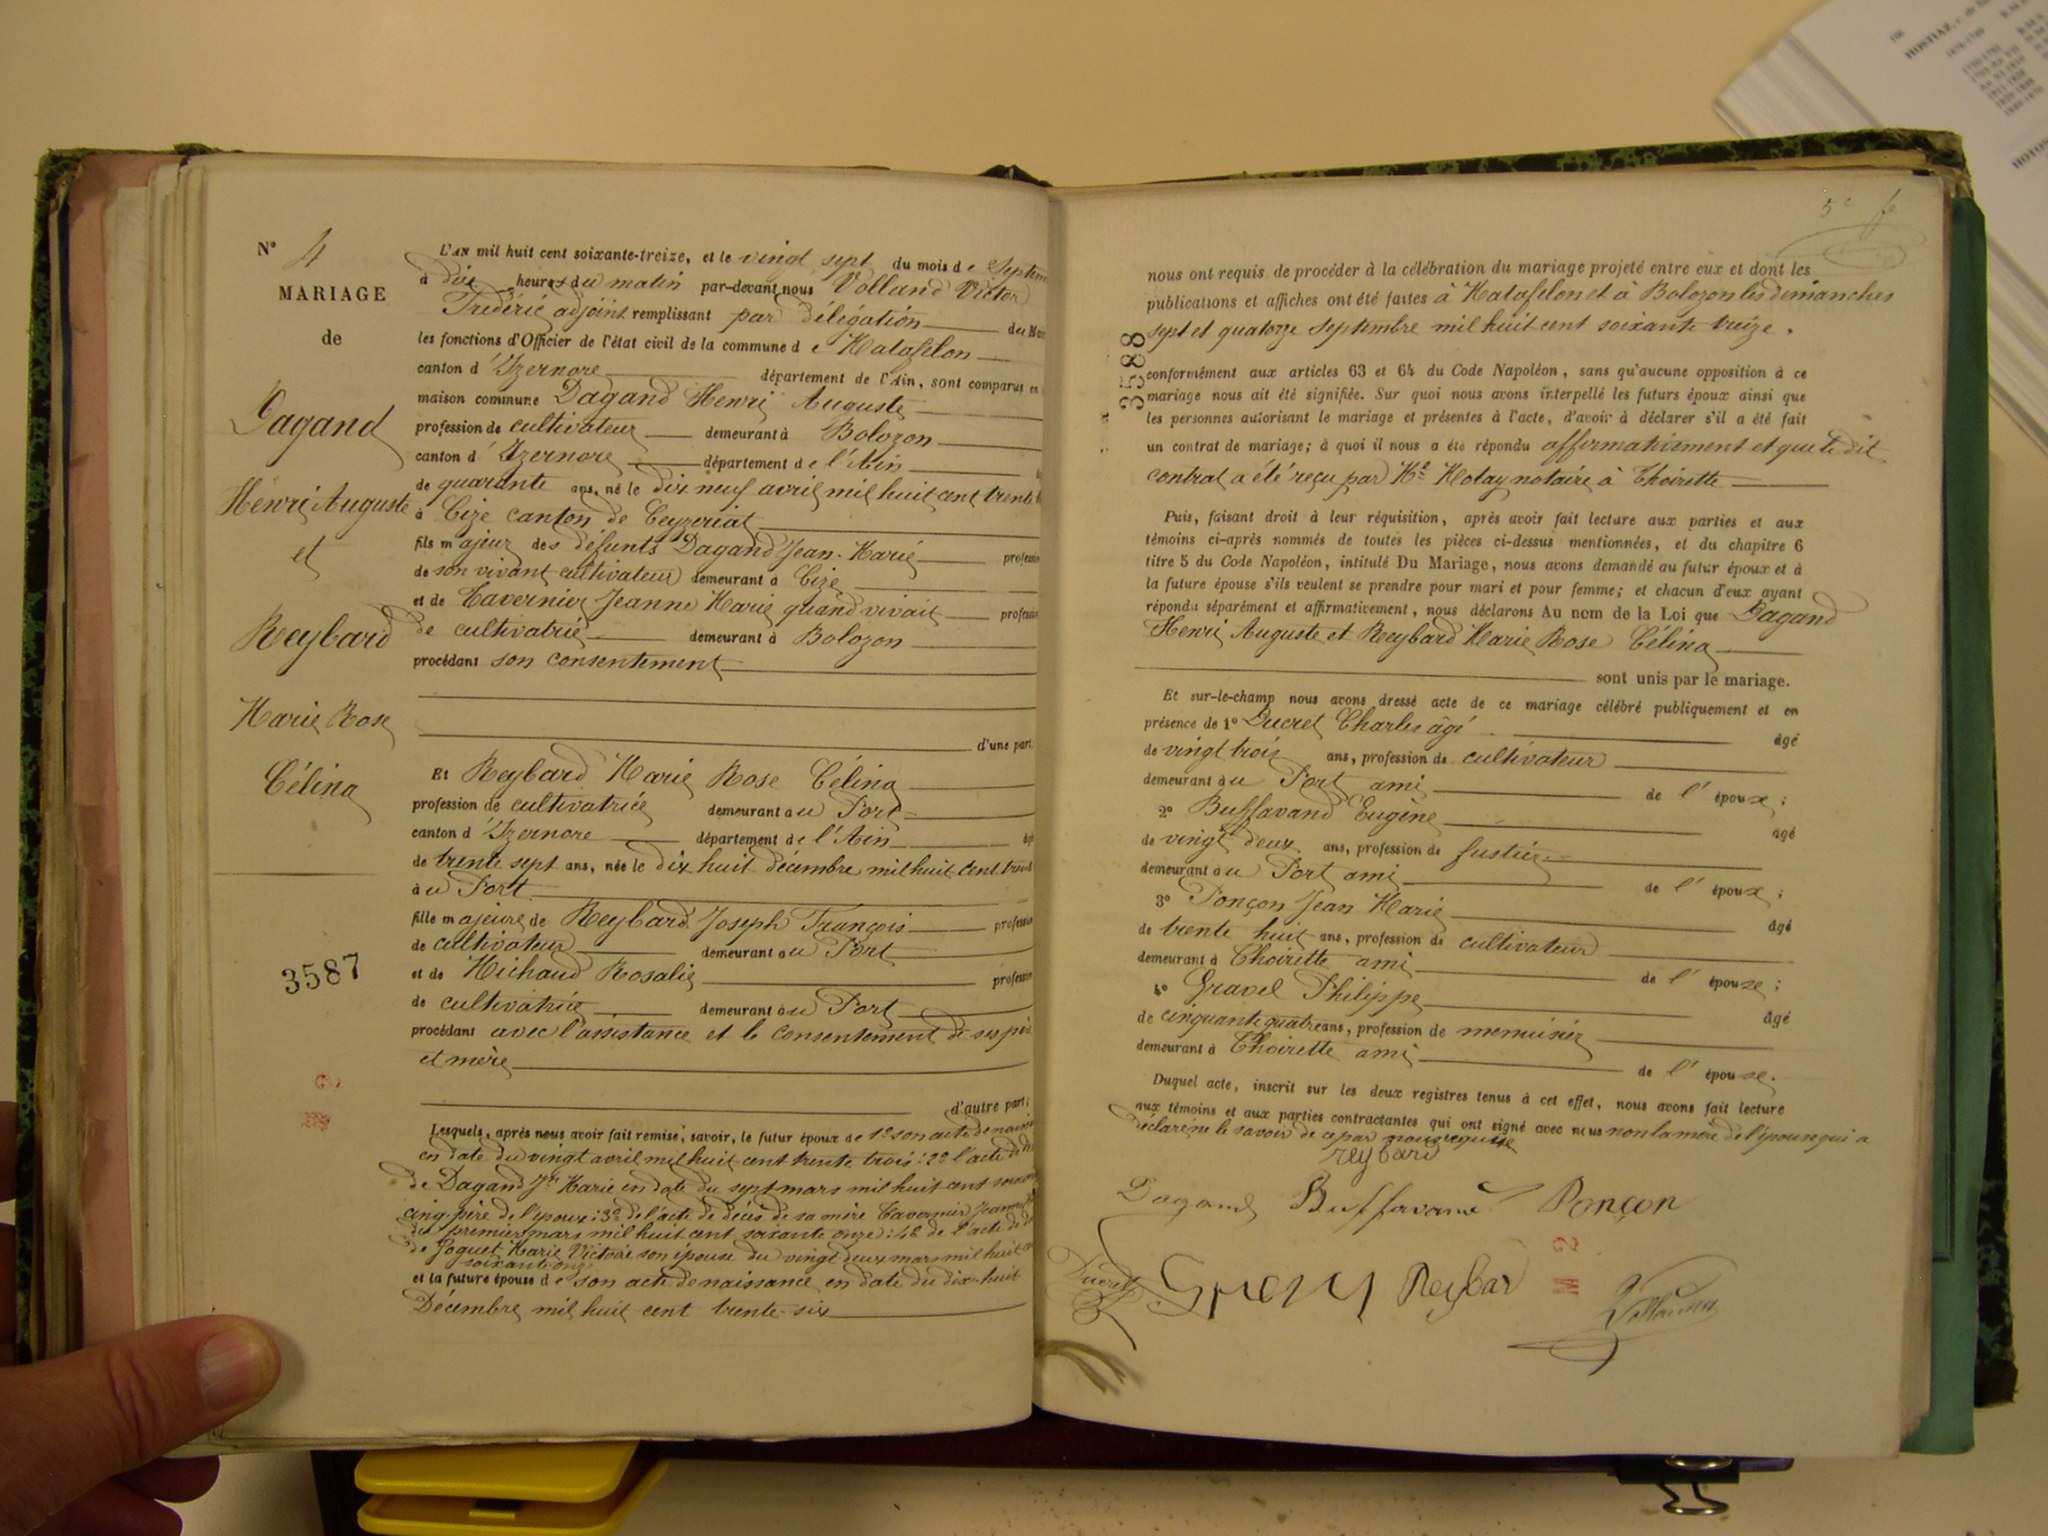 N° 4
MARIAGE
de
Dagand
Henri Auguste
et
Reybard
Marie Rose
Célina
3587
L'AN mil huit cent soixante-treize, et le vingt sept du mois de Septem
à dix heures du matin par-devant nous Volland Victor
Frédéric adjoint remplissant par délégation du M
les fonctions d'Officier de l'état civil de la commune de Matafelon
canton d'Izernore département de l'Ain, sont comparus en
maison commune Dagand Henri Auguste
profession de cultivateur demeurant à Bolozon
canton d'Izernore département de l'Ain
de quarante ans, né le dix neuf avril mil huit cent trente
à Cize canton de Ceyzeriat
fils majeur des défunts Dagand Jean-Marie profession
de son vivant cultivateur demeurant à Cize
et de Tavernier Jeanne Marie quand vivait profession
de cultivatrice demeurant à Bolozon
procédant son consentement
d'une part.
Et Reybard Marie Rose Célina
profession de cultivatrice demeurant au Port
canton d'Izernore département de l'Ain
de trente sept ans, née le dix huit décembre mil huit cent trent
au Port
fille majeure de Reybard Joseph François profession
de cultivateur demeurant au Port
et de Michaud Rosalie profession
de cultivatrice demeurant au Port
procédant avec l'assistance et le consentement de ses père
et mère
d'autre part;
Lesquels, après nous avoir fait remise, savoir, le futur époux de 1° son acte de naiss
en date du vingt avril mil huit cent trente trois: 2° l'acte de
de Dagand Jn Marie en date du sept mars mil huit cent soixan
cinq père de l'époux: 3° de l'acte de décès de sa mère Tavernier Jeanne
du premier mars mil huit cent soixante onze: 4° de l'acte de
de Goguet Marie Victoire son épouse du vingt deux mars mil huit
soixante onze
et la future épouse de son acte de naissance en date du dix-huit
Décembre mil huit cent trente-six
5e f
3588
nous ont requis de procéder à la célébration du mariage projeté entre eux et dont les
publications et affiches ont été faites à Matafelon et à Bolozon les dimanches
sept et quatorze Septembre mil huit cent soixante treize.
conformément aux articles 63 et 64 du Code Napoléon, sans qu'aucune opposition à ce
mariage nous ait été signifiée. Sur quoi nous avons interpellé les futurs époux ainsi que
les personnes autorisant le mariage et présentes à l'acte, d'avoir à déclarer s'il a été fait
un contrat de mariage; à quoi il nous a été répondu affirmativement et que le dit
contrat a été reçu par Me Motay notaire à Thoirette
Puis, faisant droit à leur réquisition, après avoir fait lecture aux parties et aux
témoins ci-après nommés de toutes les pièces ci-dessus mentionnées, et du chapitre 6
titre 5 du Code Napoléon, intitulé Du Mariage, nous avons demandé au futur époux et à
la future épouse s'ils veulent se prendre pour mari et pour femme; et chacun d'eux ayant
répondu séparément et affirmativement, nous déclarons Au nom de la Loi que Dagand
Henri Auguste et Reybard Marie Rose Célina
sont unis par le mariage.
Et sur-le-champ nous avons dressé acte de ce mariage célébré publiquement et en
présence de 1° Ducret Charles âgé âgé
de vingt trois ans, profession de cultivateur
demeurant au Port ami de l'époux;
2° Buffavand Eugène âgé
de vingt deux ans, profession de fustier
demeurant au Port ami de l'époux;
3° Ponçon Jean Marie âgé
de trente huit ans, profession de cultivateur
demeurant à Thoirette ami de l'épouse;
4° Gravel Philippe âgé
de cinquante quatre ans, profession de menuisier
demeurant à Thoirette ami de l'épouse.
Duquel acte, inscrit sur les deux registres tenus à cet effet, nous avons fait lecture
aux témoins et aux parties contractantes qui ont signé avec nous non la mère de l'épouse qui a
déclaré ne le savoir de ce par nous requise
reybard
Dagand Buffavand Ponçon
Ducret Reybard Volland
HOSTIAZ